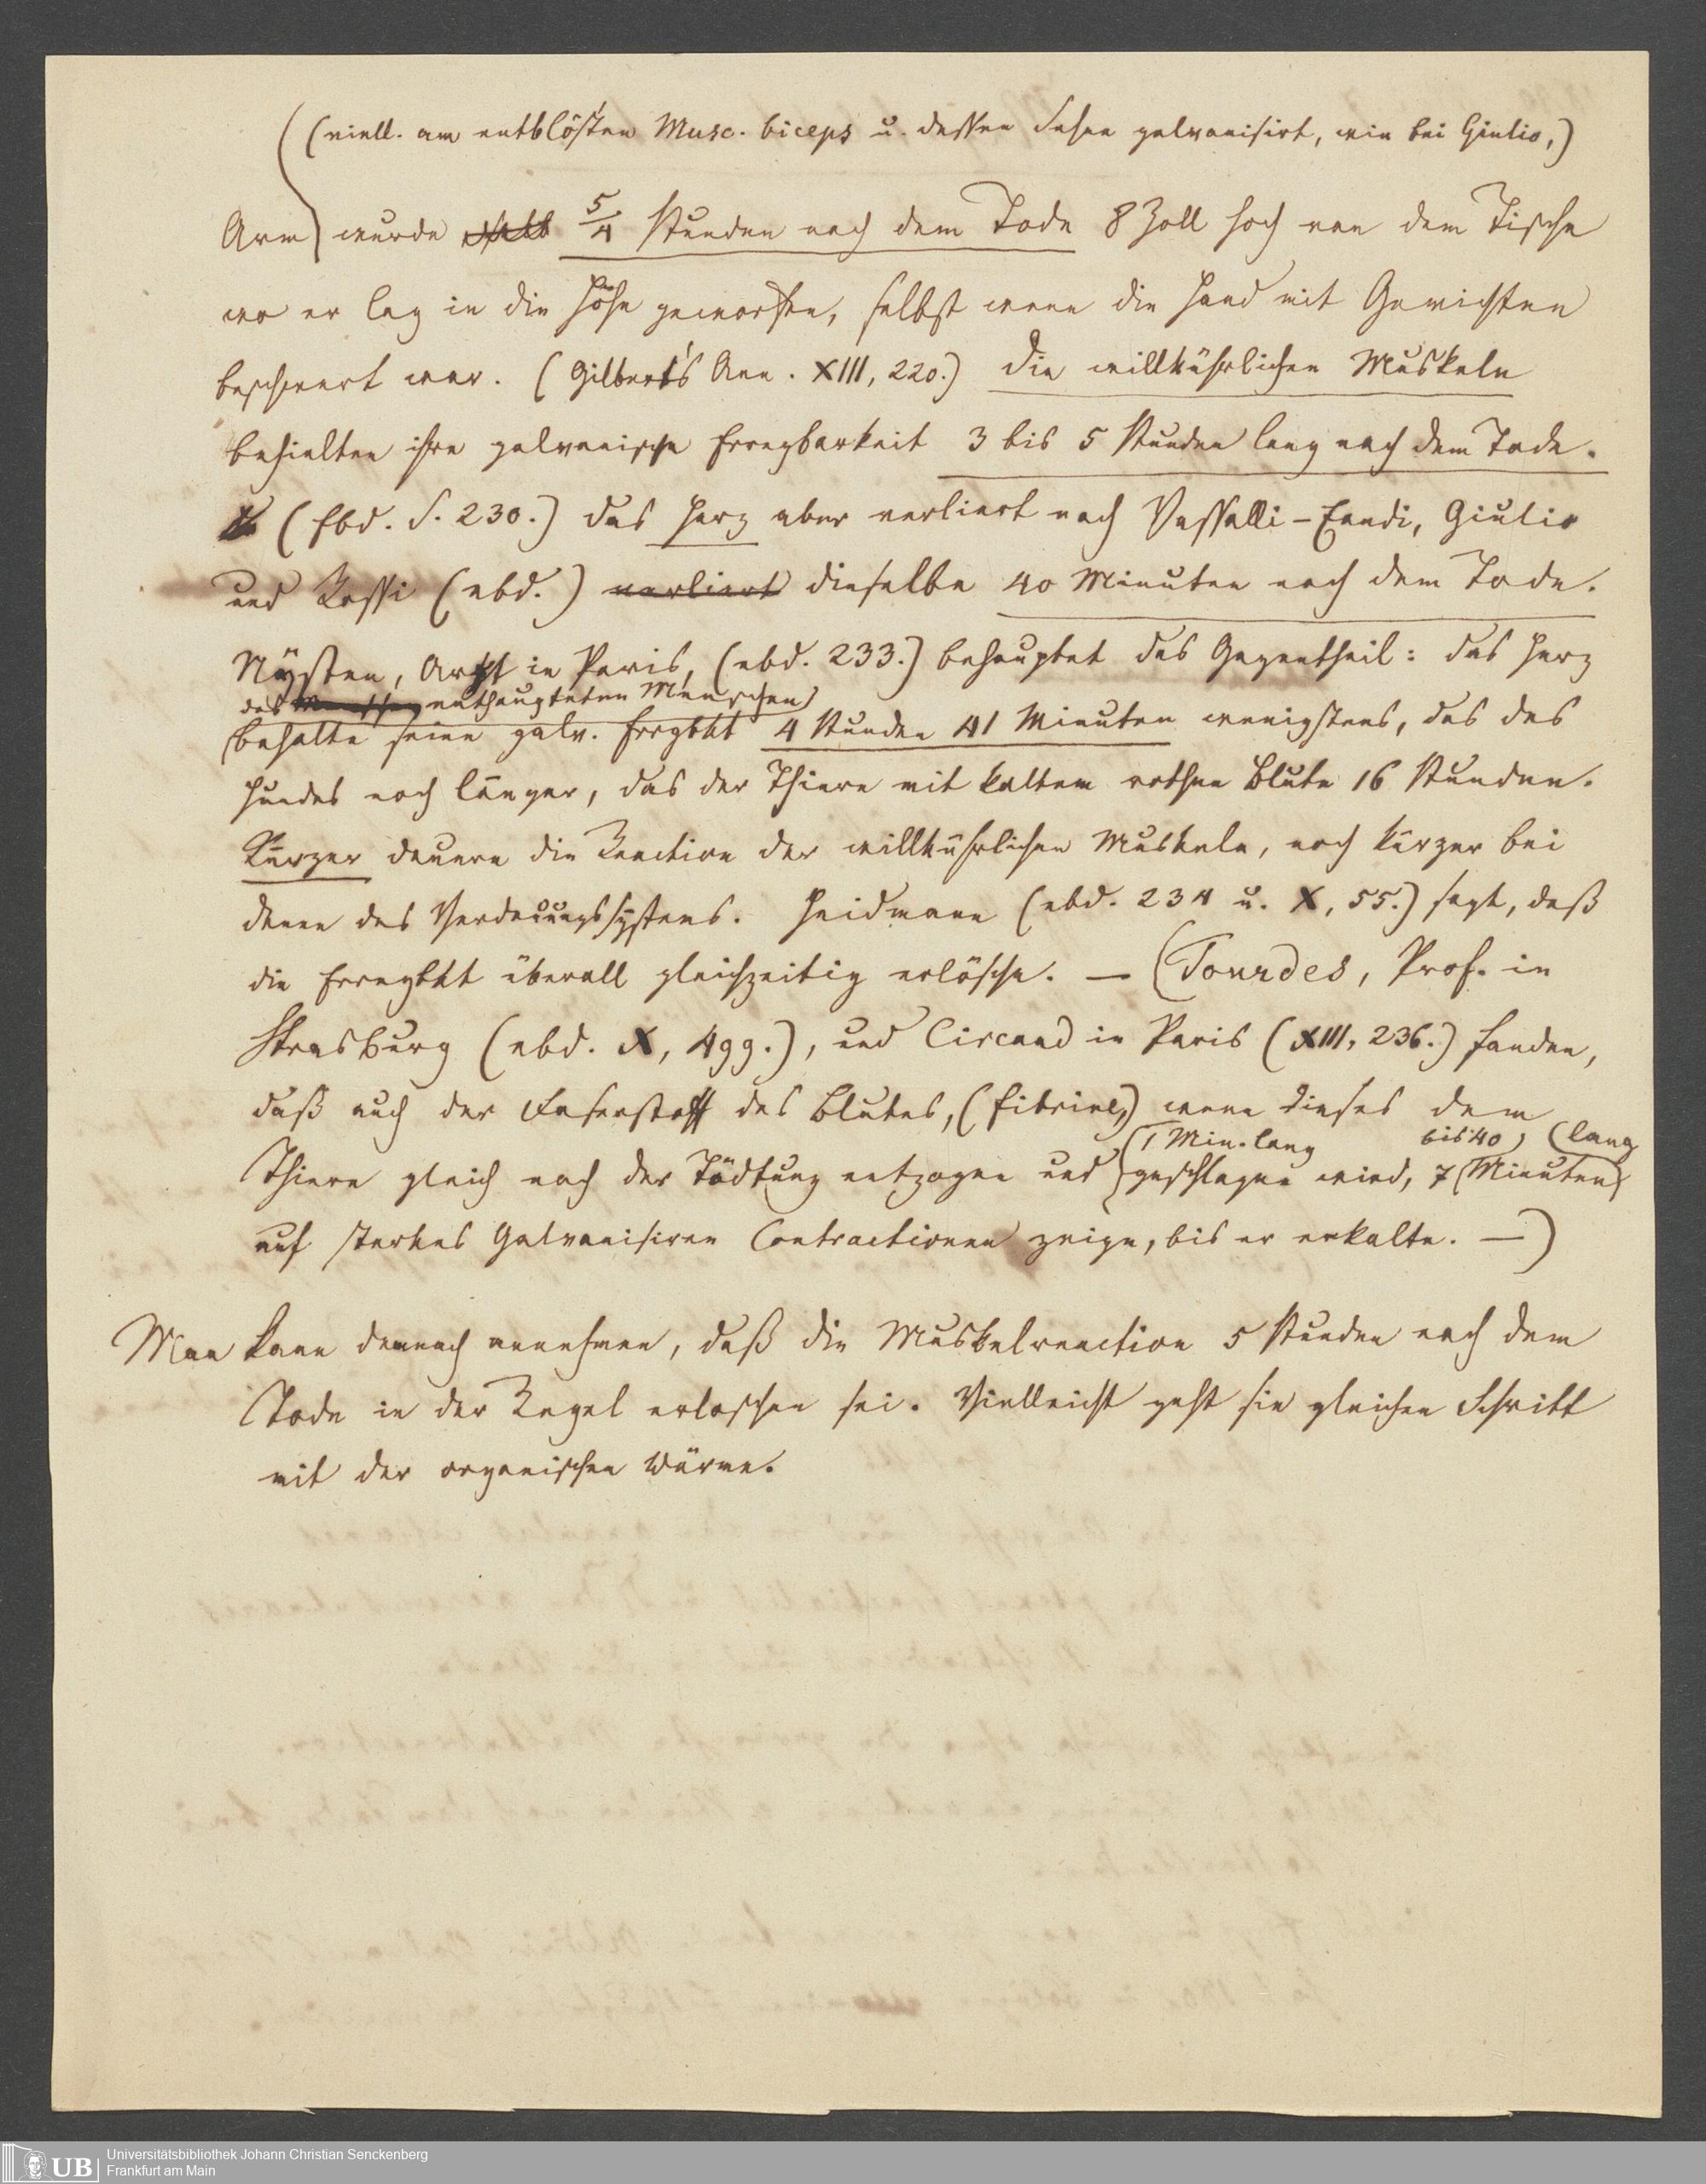 (viell. am entblösten Musc. biceps u. dessen Sehne galvanisirt, wie bei Giulio,)
Arm wurde 5/4 Stunden nach dem Tode 8 Zoll hoch von dem Tische
wo er lag in die Höhe geworfen, selbst wenn die Hand mit Gewichten
beschwert war. (Gilbert's Ann. XIII, 220.) Die willkührlichen Muskeln
behielten ihre galvanische Erregbarkeit 3 bis 5 Stunden lang nach dem Tode.
(Ebd. S. 230.) Das Herz aber verliert nach Vassalli-Eandi, Giulio
und Rossi (ebd.) verliert dieselbe 40 Minuten nach dem Tode.
Nÿsten, Arzt in Paris, (ebd. 233.) behauptet das Gegentheil: das Herz
des Menschen enthaupteten Menschen
behalte seine galv. Erregbkt 4 Stunden 41 Minuten wenigstens, das des
Hundes noch länger, das der Thiere mit kaltem rothen Blute 16 Stunden.
Kürzer dauere die Reaction der willkührlichen Muskeln, noch kürzer bei
denen des Verdauungssystems. Heidmann (ebd. 234 u. X, 55.) sagt, daß
die Erregbkt überall gleichzeitig erlösche. — (Tourdes, Prof. in
Strasburg (ebd. X, 499.), und Circaud in Paris (XIII, 236.) fanden,
daß auch der Faserstoff des Blutes, (Fibrine,) wenn dieses dem
1 Min. lang bis 40, lang
Thiere gleich nach der Tödtung entzogen und geschlagen wird, 7 Minuten
auf starkes Galvanisiren Contractionen zeige, bis er erkalte. —)
Man kann demnach annehmen, daß die Muskelreaction 5 Stunden nach dem
Tode in der Regel erloschen sei. Vielleicht geht sie gleichen Schritt
mit der organischen Wärme.
Universitätsbibliothek Johann Christian Senckenberg
UB Frankfurt am Main